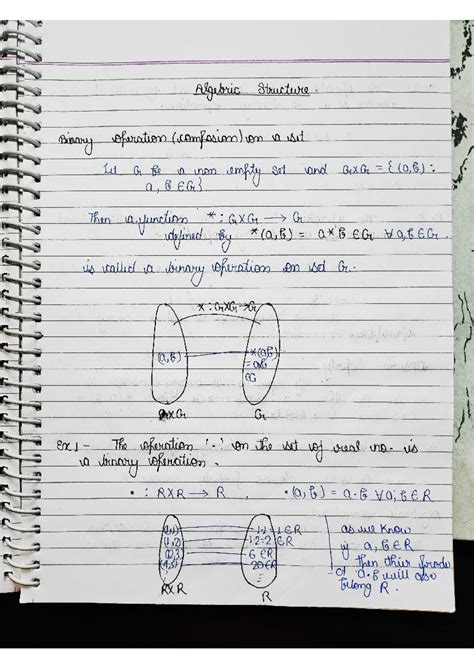 Algebric Structure.
Binary operation (composion) on a set
Let G be a non empty set and G×G = {(a,b) :
a, b ∈ G}
Then a function * : G×G → G
defined by *(a,b) = a*b ∈ G ∀ a,b ∈ G.
is called a binary operation on set G.
* : G×G → G
(a,b)
*(a,b)
= a*b
∈G
G×G
G
Ex 1 - The operation '·' on the set of real no. is
a binary operation.
• : R×R → R, ·(a,b) = a·b ∀ a,b ∈ R
(1,1)
(1,2)
(2,3)
(4,5)
1·1 = 1 ∈ R
1·2 = 2 ∈ R
6 ∈ R
20 ∈ R
R×R
R
as we know
if a, b ∈ R
then their produ
ct a·b will also
belong R.